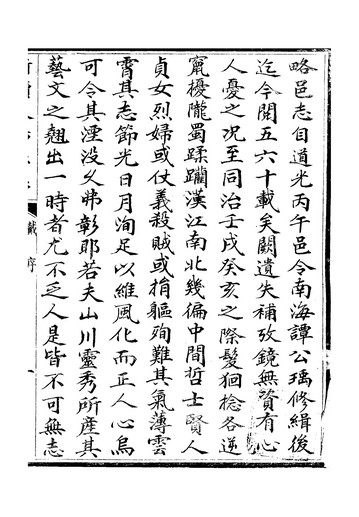 略邑志自道光丙午邑令南海譚公瑀修緝後
迄今閱五六十載矣闕遺失補攷鏡無資有心
人憂之况至同治壬戌癸亥之際髮狪捻各逆
竄擾隴蜀蹂躪漢江南北幾徧中間哲士賢人
貞女烈婦或仗義殺賊或捐軀殉難其氣薄雲
霄其志節光日月洵足以維風化而正人心烏
可令其湮没乆弗彰耶若夫山川靈秀所產其
藝文之翹出一時者尤不乏人是皆不可無志
序